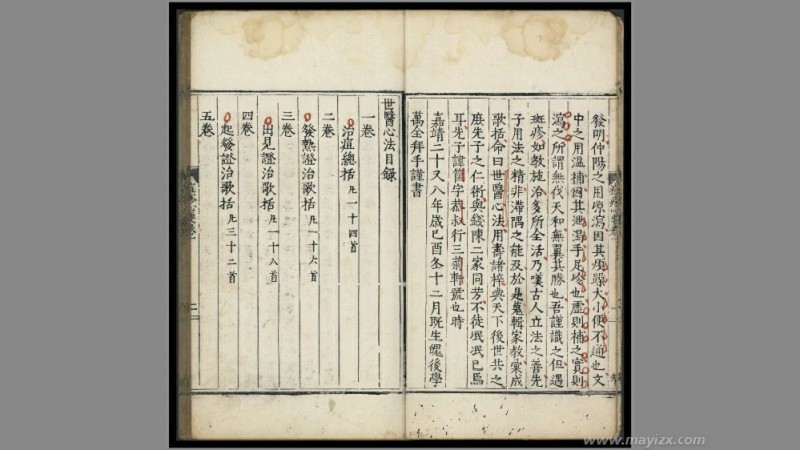 發明仲陽之用凉瀉因其煩躁大小便不通也文
中之用溫補因其泄瀉手足冷也虛則補之實則
瀉之所謂無伐天和無翼其勝也吾謹識之但遇
斑疹如教施治多所全活乃嘆古人立法之善先
子用法之精非滯隅之能及於是蒐輯家教彙成
歌括命曰世醫心法用壽諸梓與天下後世共之
庶先子之仁術與錢陳二家同芳不徒泯泯已焉
耳先子諱筐字恭叔行三菊軒號也時
嘉靖二十又八年歲己酉冬十二月既生魄後學
萬全拜手謹書
世醫心法目録
一卷
治痘總括凢一十四首
二卷
發熱證治歌括凢一十六首
三卷
出見證治歌括凢一十八首
四卷
起發證治歌括凢三十二首
五卷
二
www.mayizx.com